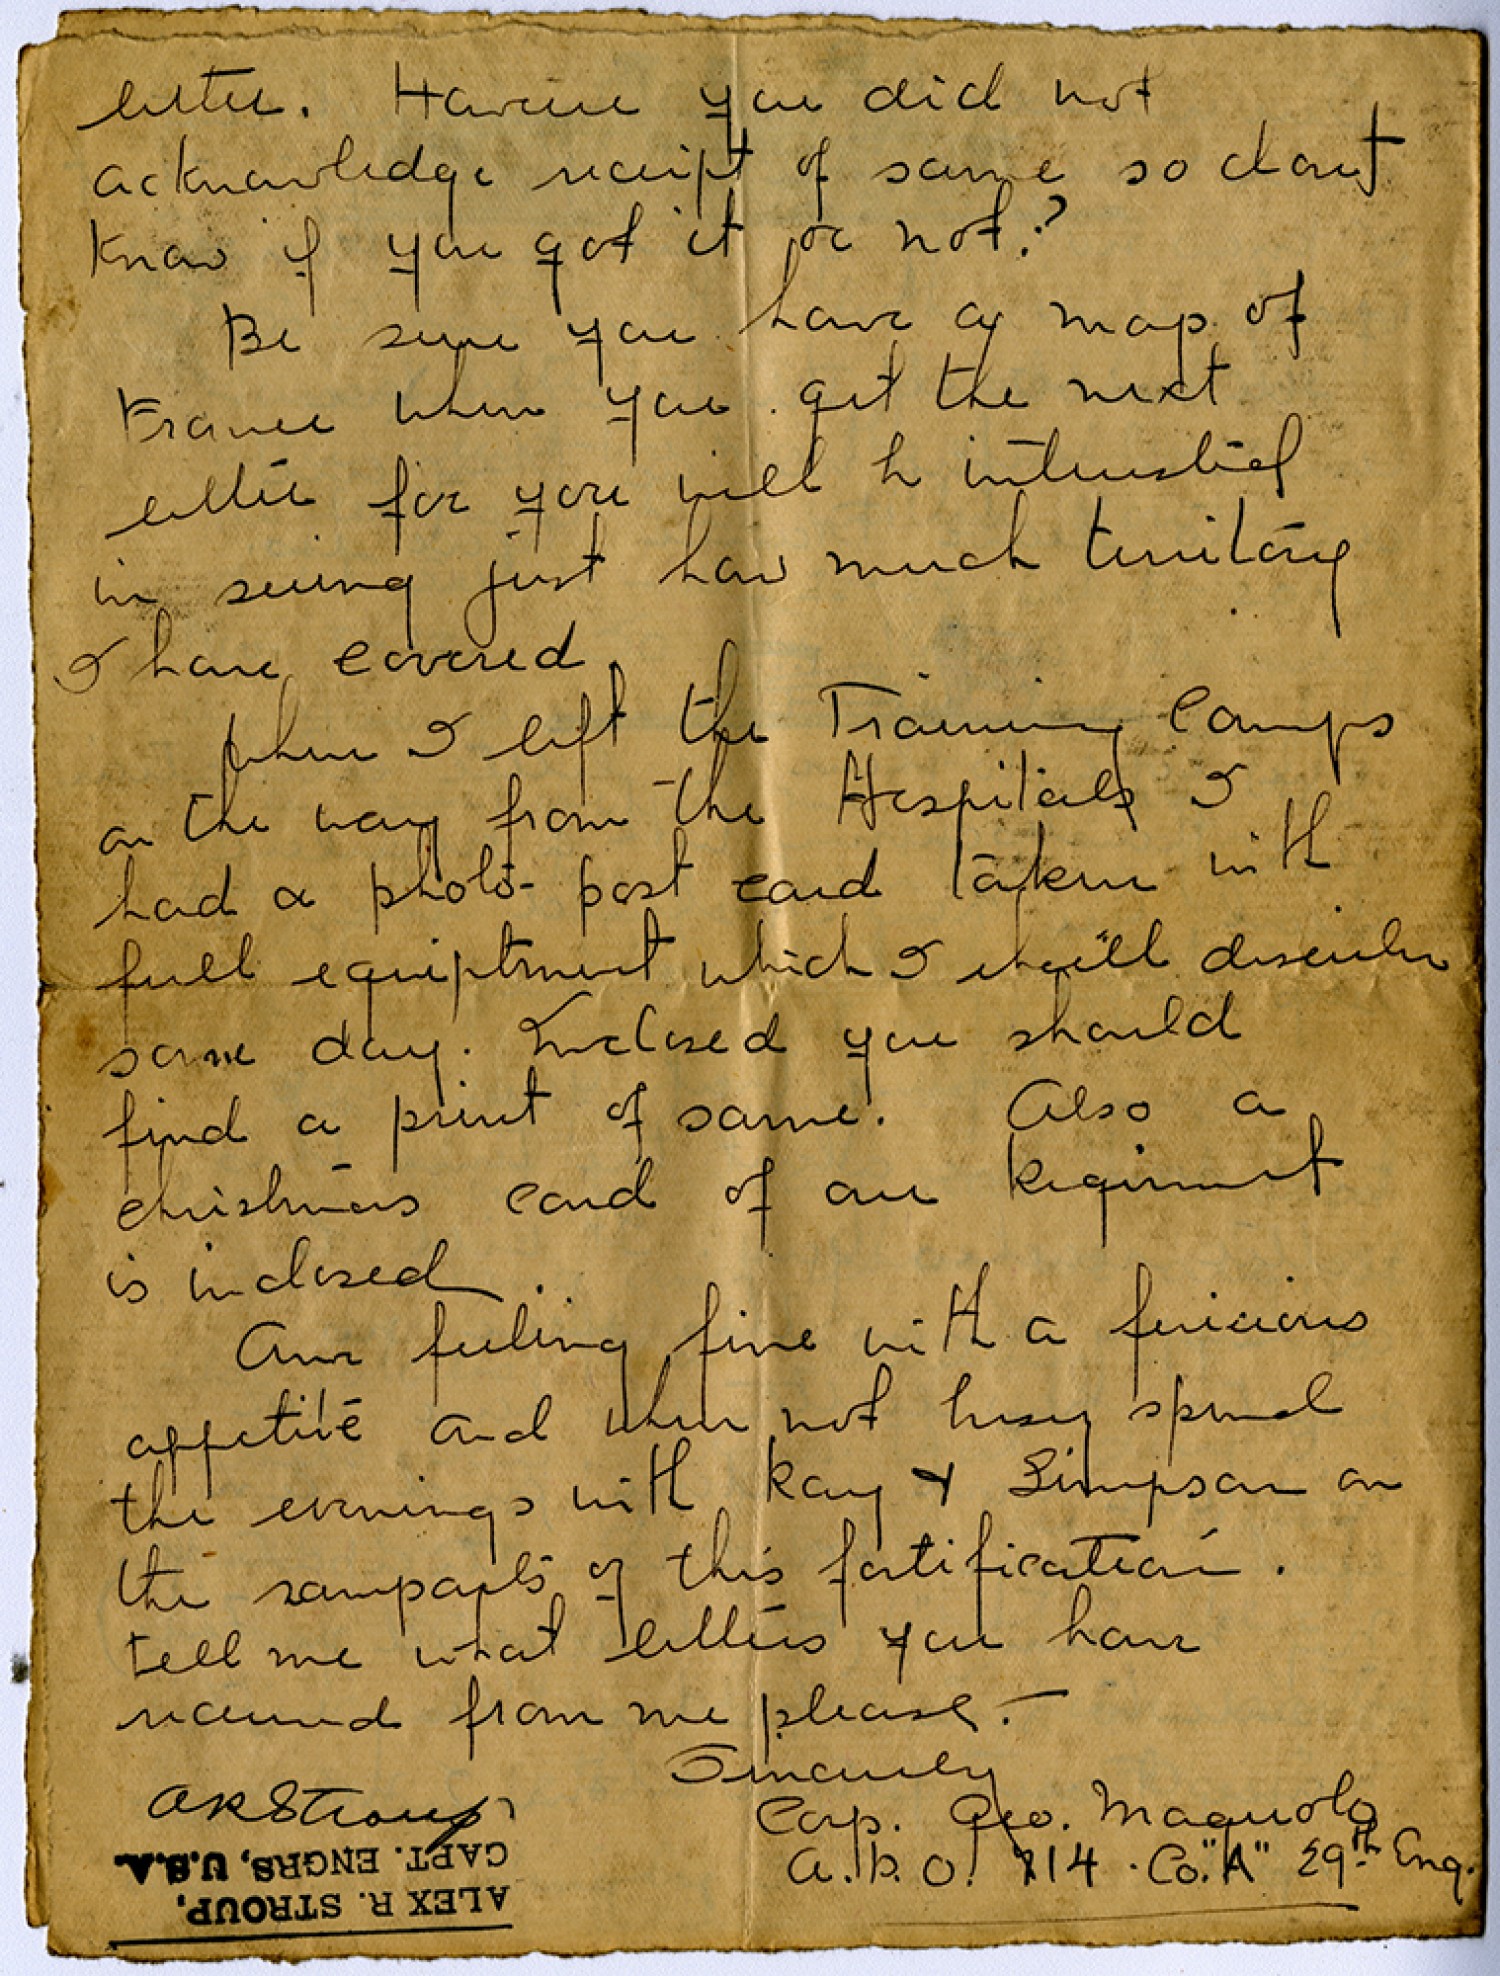 letter. Havene you did not
acknowledge receipt of same so dont
know if you got it or not?
Be sure you have a map of
France when you get the next
letter for you will be interested
in seeing just how much territory
I have covered.
When I left the Training Camps
on the way from the Hospitals I
had a photo-post card taken with
full equiptment which I shall describe
some day. Inclosed you should
find a print of same. Also a
christmas card of our Regiment
is inclosed.
Am feeling fine with a fericious
appetite and when not busy spend
the evenings with Kay & Simpson on
the ramparts of this fortification.
tell me what letters you have
received from me please.-
Sincerely
Corp. Geo. Magnolo
A.P.O. 714. Co. "A" 29th Eng.
ARStroup
ALEX R. STROUP,
CAPT. ENGRS, U.S.A.